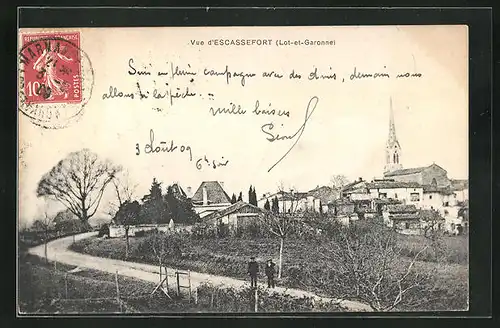 Vue d'ESCASSEFORT (Lot-et-Garonne)
RÉPUBLIQUE FRANÇAISE
10c
POSTES
Suis en plein campagne avec des amis, demain nous
allons à la pêche.
Mille baisers
3 Août 09
6h soir